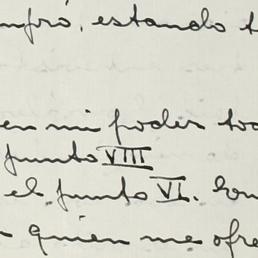 estando
en mi poder
punto VIII
el punto VI.
quien me